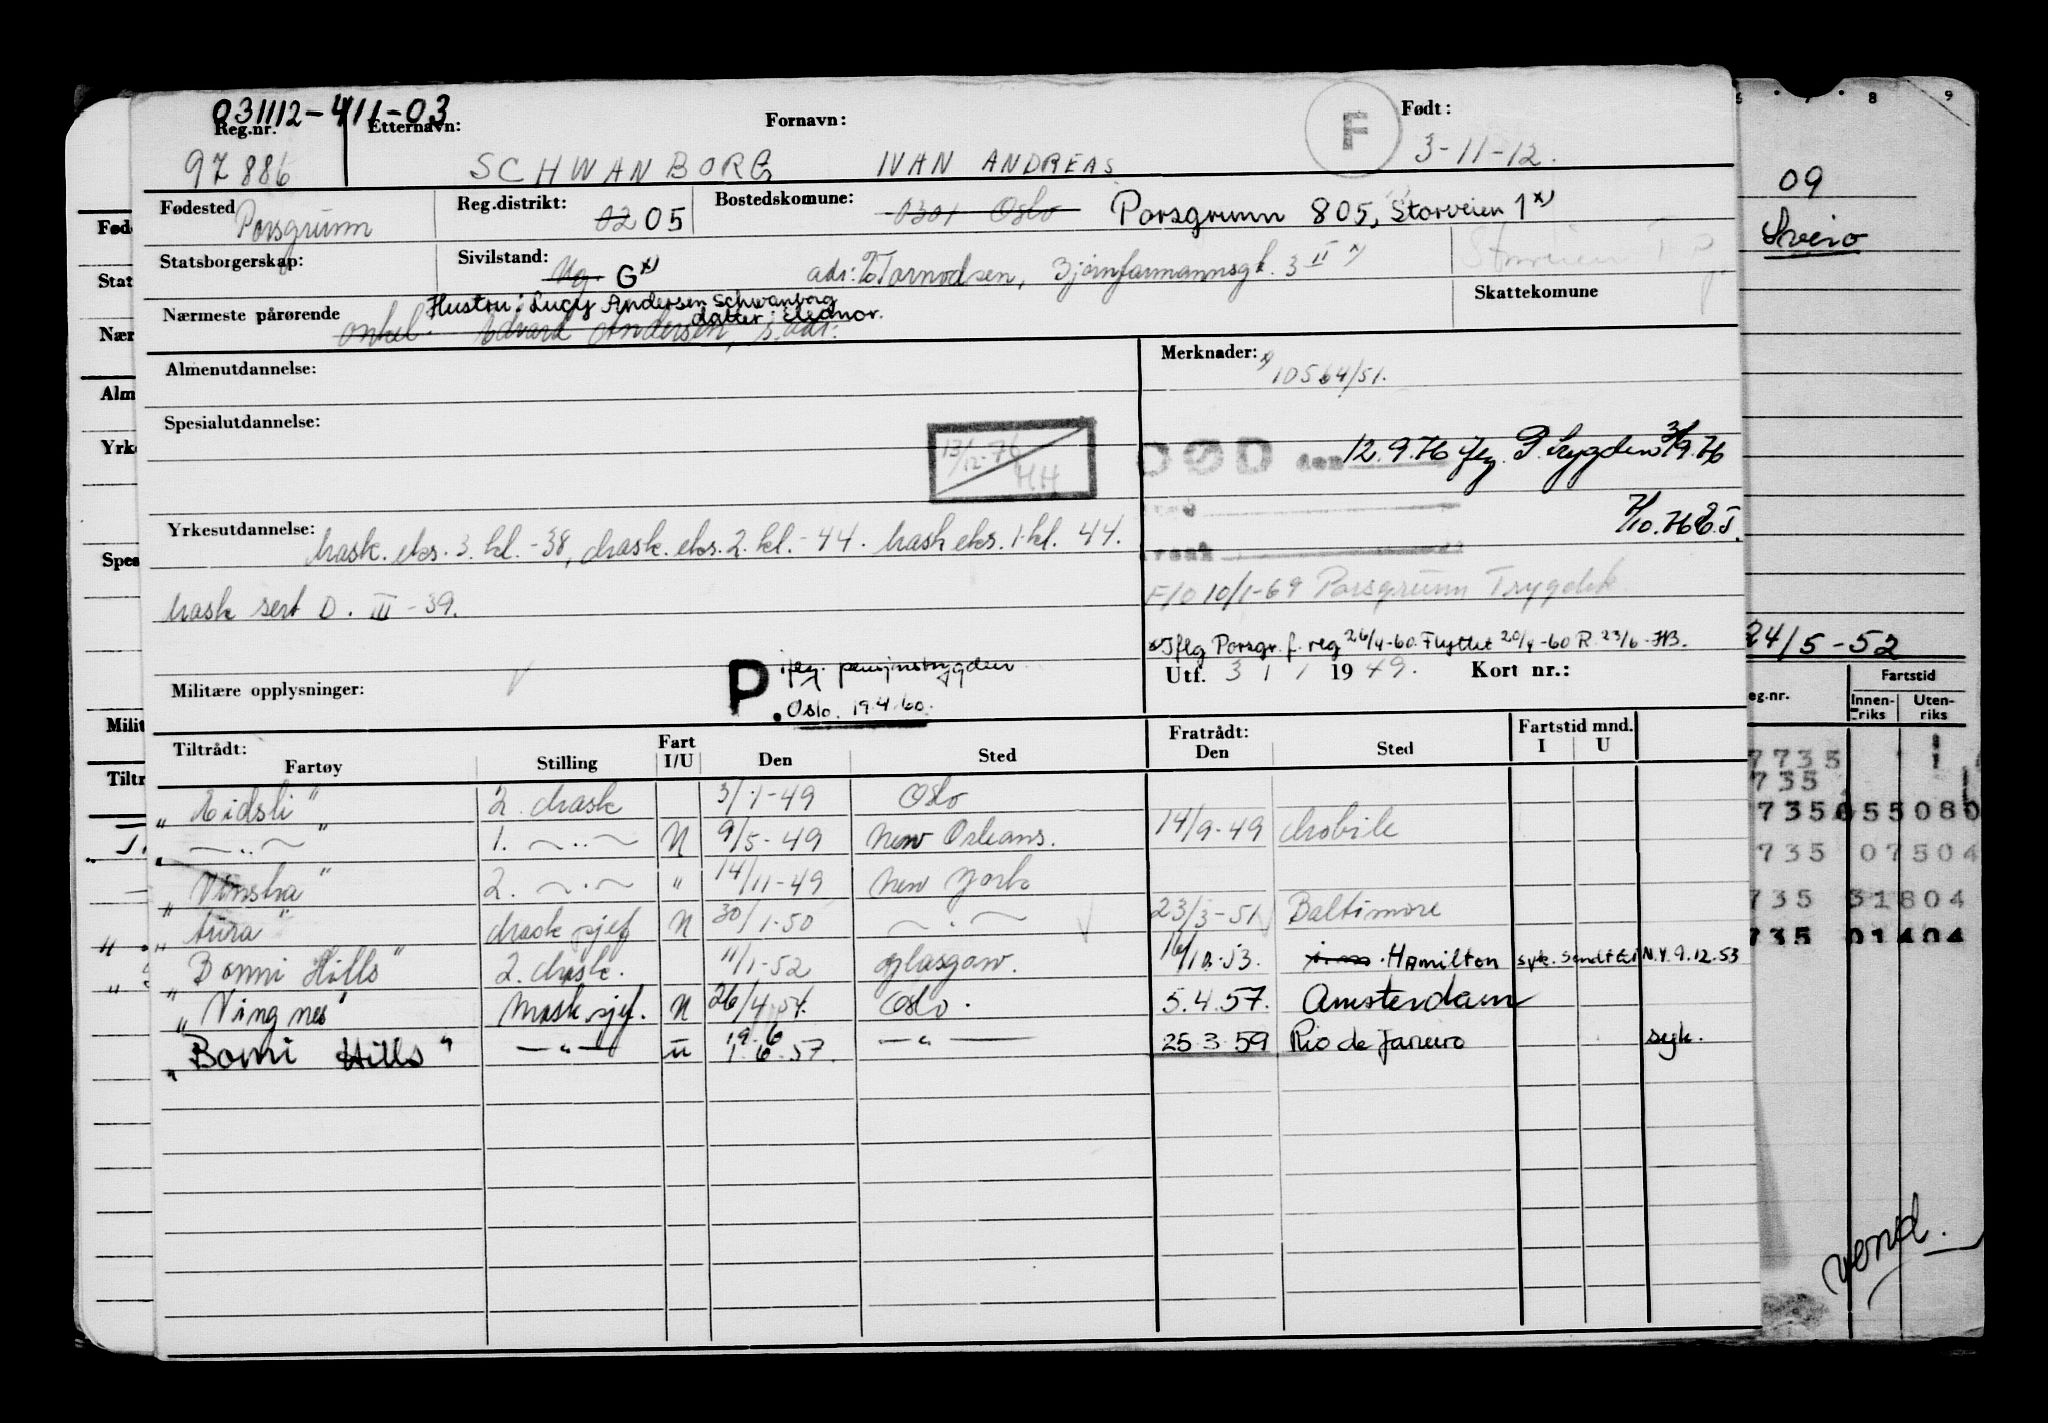 031112-411-03
Reg.nr. Etternavn: Fornavn: F Født:
97886 SCHWANBORG IVAN ANDREAS 3-11-12.
Fødested Porsgrunn Reg.distrikt: 02 05 Bostedskomune: 0301 Oslo Porsgrunn 805, Storveien 1 x)
Statsborgerskap: Sivilstand: Ug. G x) adr: Tornodsen, Bjørnfarmannsgt. 3 II Storveien
Skattekomune
Nærmeste pårørende Hustru: Lucy Andersen Schwanborg
datter: Eleanor.
onkel Edvard Andersen, s. adr.
Almenutdannelse: Merknader: x) 10564/51.
Spesialutdannelse:
13/12-76 HH DØD den 12.9.76 P. Trygden 9.76
7/10.76 E.J.
Yrkesutdannelse: Mask. eks. 3. kl. -38, Mask. eks. 2. kl. -44. Mask eks. 1. kl. 44.
Mask sert D. III -39.
F/O 10/1-69 Porsgrunn Trygdek
x Iflg Porsgr. f. reg 26/4-60. Flyttet 20/4-60 R. 23/6-HB.
Utf. 3 / 1 1949. Kort nr.:
Militære opplysninger: P iflg. pensjonstrygden
Oslo. 19.4.60.
Tiltrådt: Fratrådt: Fartstid mnd.
Fartøy Stilling Fart I/U Den Sted Den Sted I U
"Eidsli" 2. Mask 3/1-49 Oslo
" — " — " 1. — " — U 9/5-49 New Orleans. 14/9-49 Mobile
"Vinstra" 2. — " — " 14/11-49 New York
"Aura" Mask sjef U 30/1-50 — " — 23/3-51 Baltimore
"Bomi Hills" 2. Mask. 11/1-52 Glasgow. Hamilton syk. Sendt N.Y. 9.12.53
"Vingnes" Mask.sjef. U 26/4.54. Oslo. 5.4.57. Amsterdam
"Bomi Hills" — " — U 19.6
1.6.57. — " — 25.3.59 Rio de Janeiro syk.
8 9
09
Sveio
24/5-52
eg.nr. Fartstid
Innen-riks Uten-riks
7735
735
735 055080
735 07504
735 31804
735 01404
vend.
Fød
Stat
Nær
Alm
Yrk
Spes
Milit
Tiltr